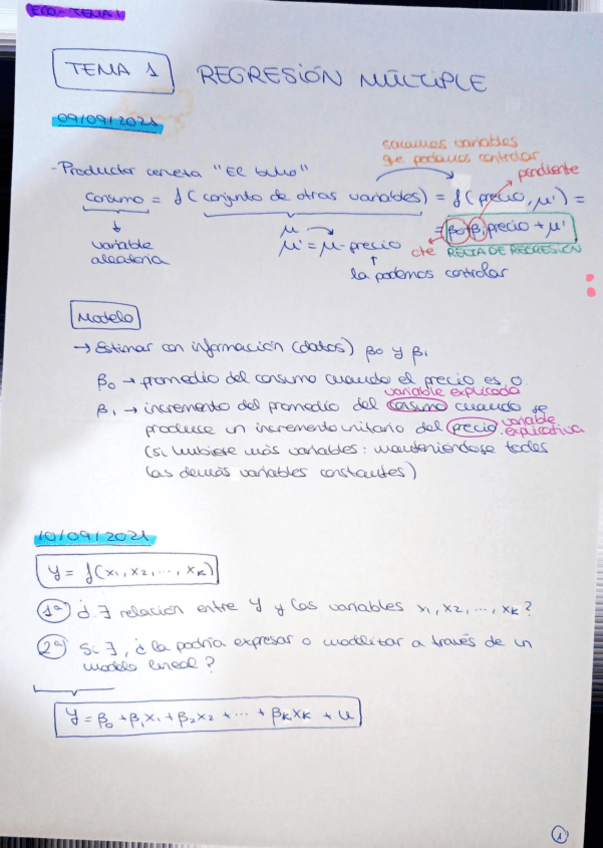 ECO - TEMA 1
TEMA 1 REGRESIÓN MÚLTIPLE
09/09/2021
sacamos variables
que podamos controlar
- Productor cerveza "El búho"
pendiente
consumo = f(conjunto de otras variables) = f(precio, μ') =
= β0 + β1 precio + μ'
variable
aleatoria
μ →
μ' = μ - precio
cte RECTA DE REGRESIÓN
la podemos controlar
Modelo
→ Estimar con información (datos) β0 y β1
β0 → promedio del consumo cuando el precio es 0
variable explicada
β1 → incremento del promedio del consumo cuando se
produce un incremento unitario del precio variable explicativa
(si hubiese más variables: manteniéndose todas
las demás variables constantes)
10/09/2021
y = f(x1, x2, ..., xK)
1ª) ¿∃ relación entre y y las variables x1, x2, ..., xK?
2ª) Si ∃, ¿la podría expresar o modelizar a través de un
modelo lineal?
y = β0 + β1x1 + β2x2 + ... + βKxK + u
1